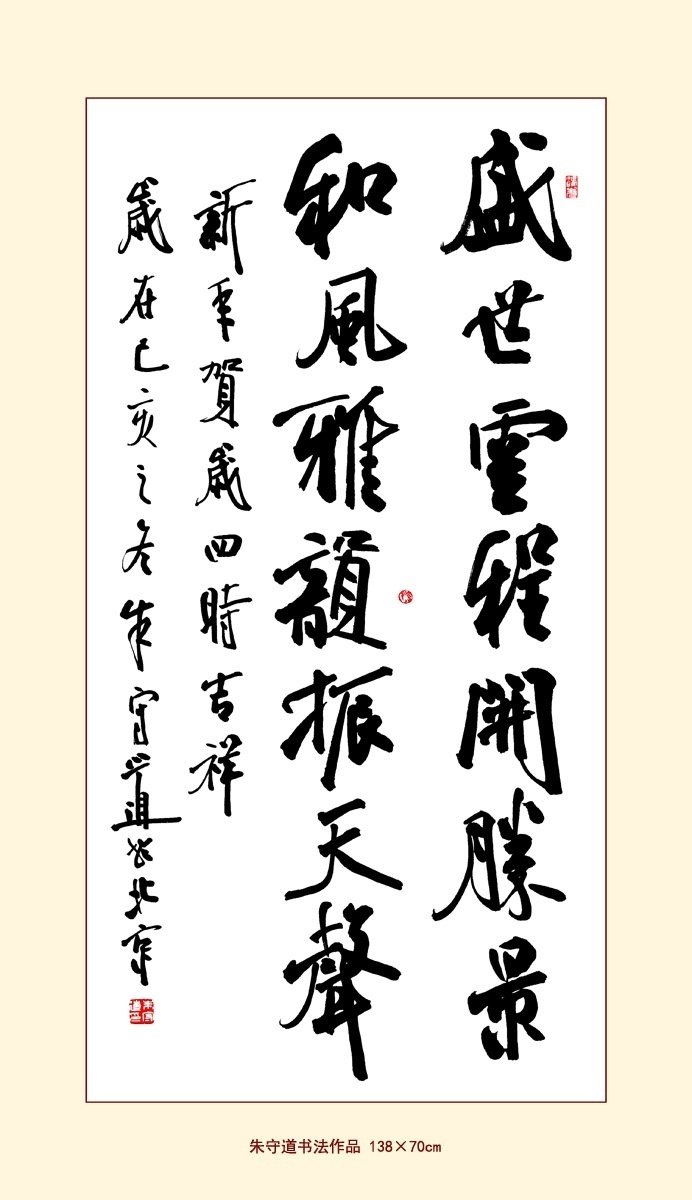 盛世雲程開勝景
和風雅韻振天聲
新年賀歲四時吉祥
歲在己亥之冬朱守道於北京
朱守道书法作品 138×70cm